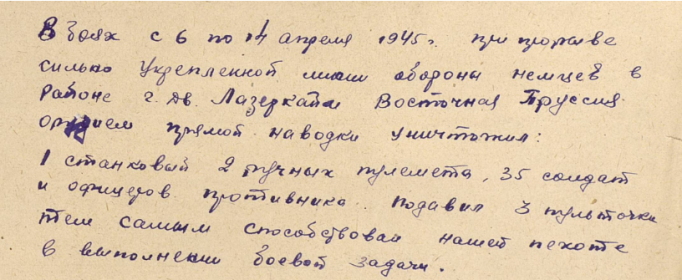 В боях с 6 по 14 апреля 1945г. при прорыве
сильно укрепленной линии обороны немцев в
районе г. дв. Лазеркайм Восточная Пруссия
орудием прямой наводки уничтожил:
1 станковый 2 ручных пулемета, 35 солдат
и офицеров противника. Подавил 3 пульточки
тем самым способствовал нашей пехоте
в выполнении боевой задачи.